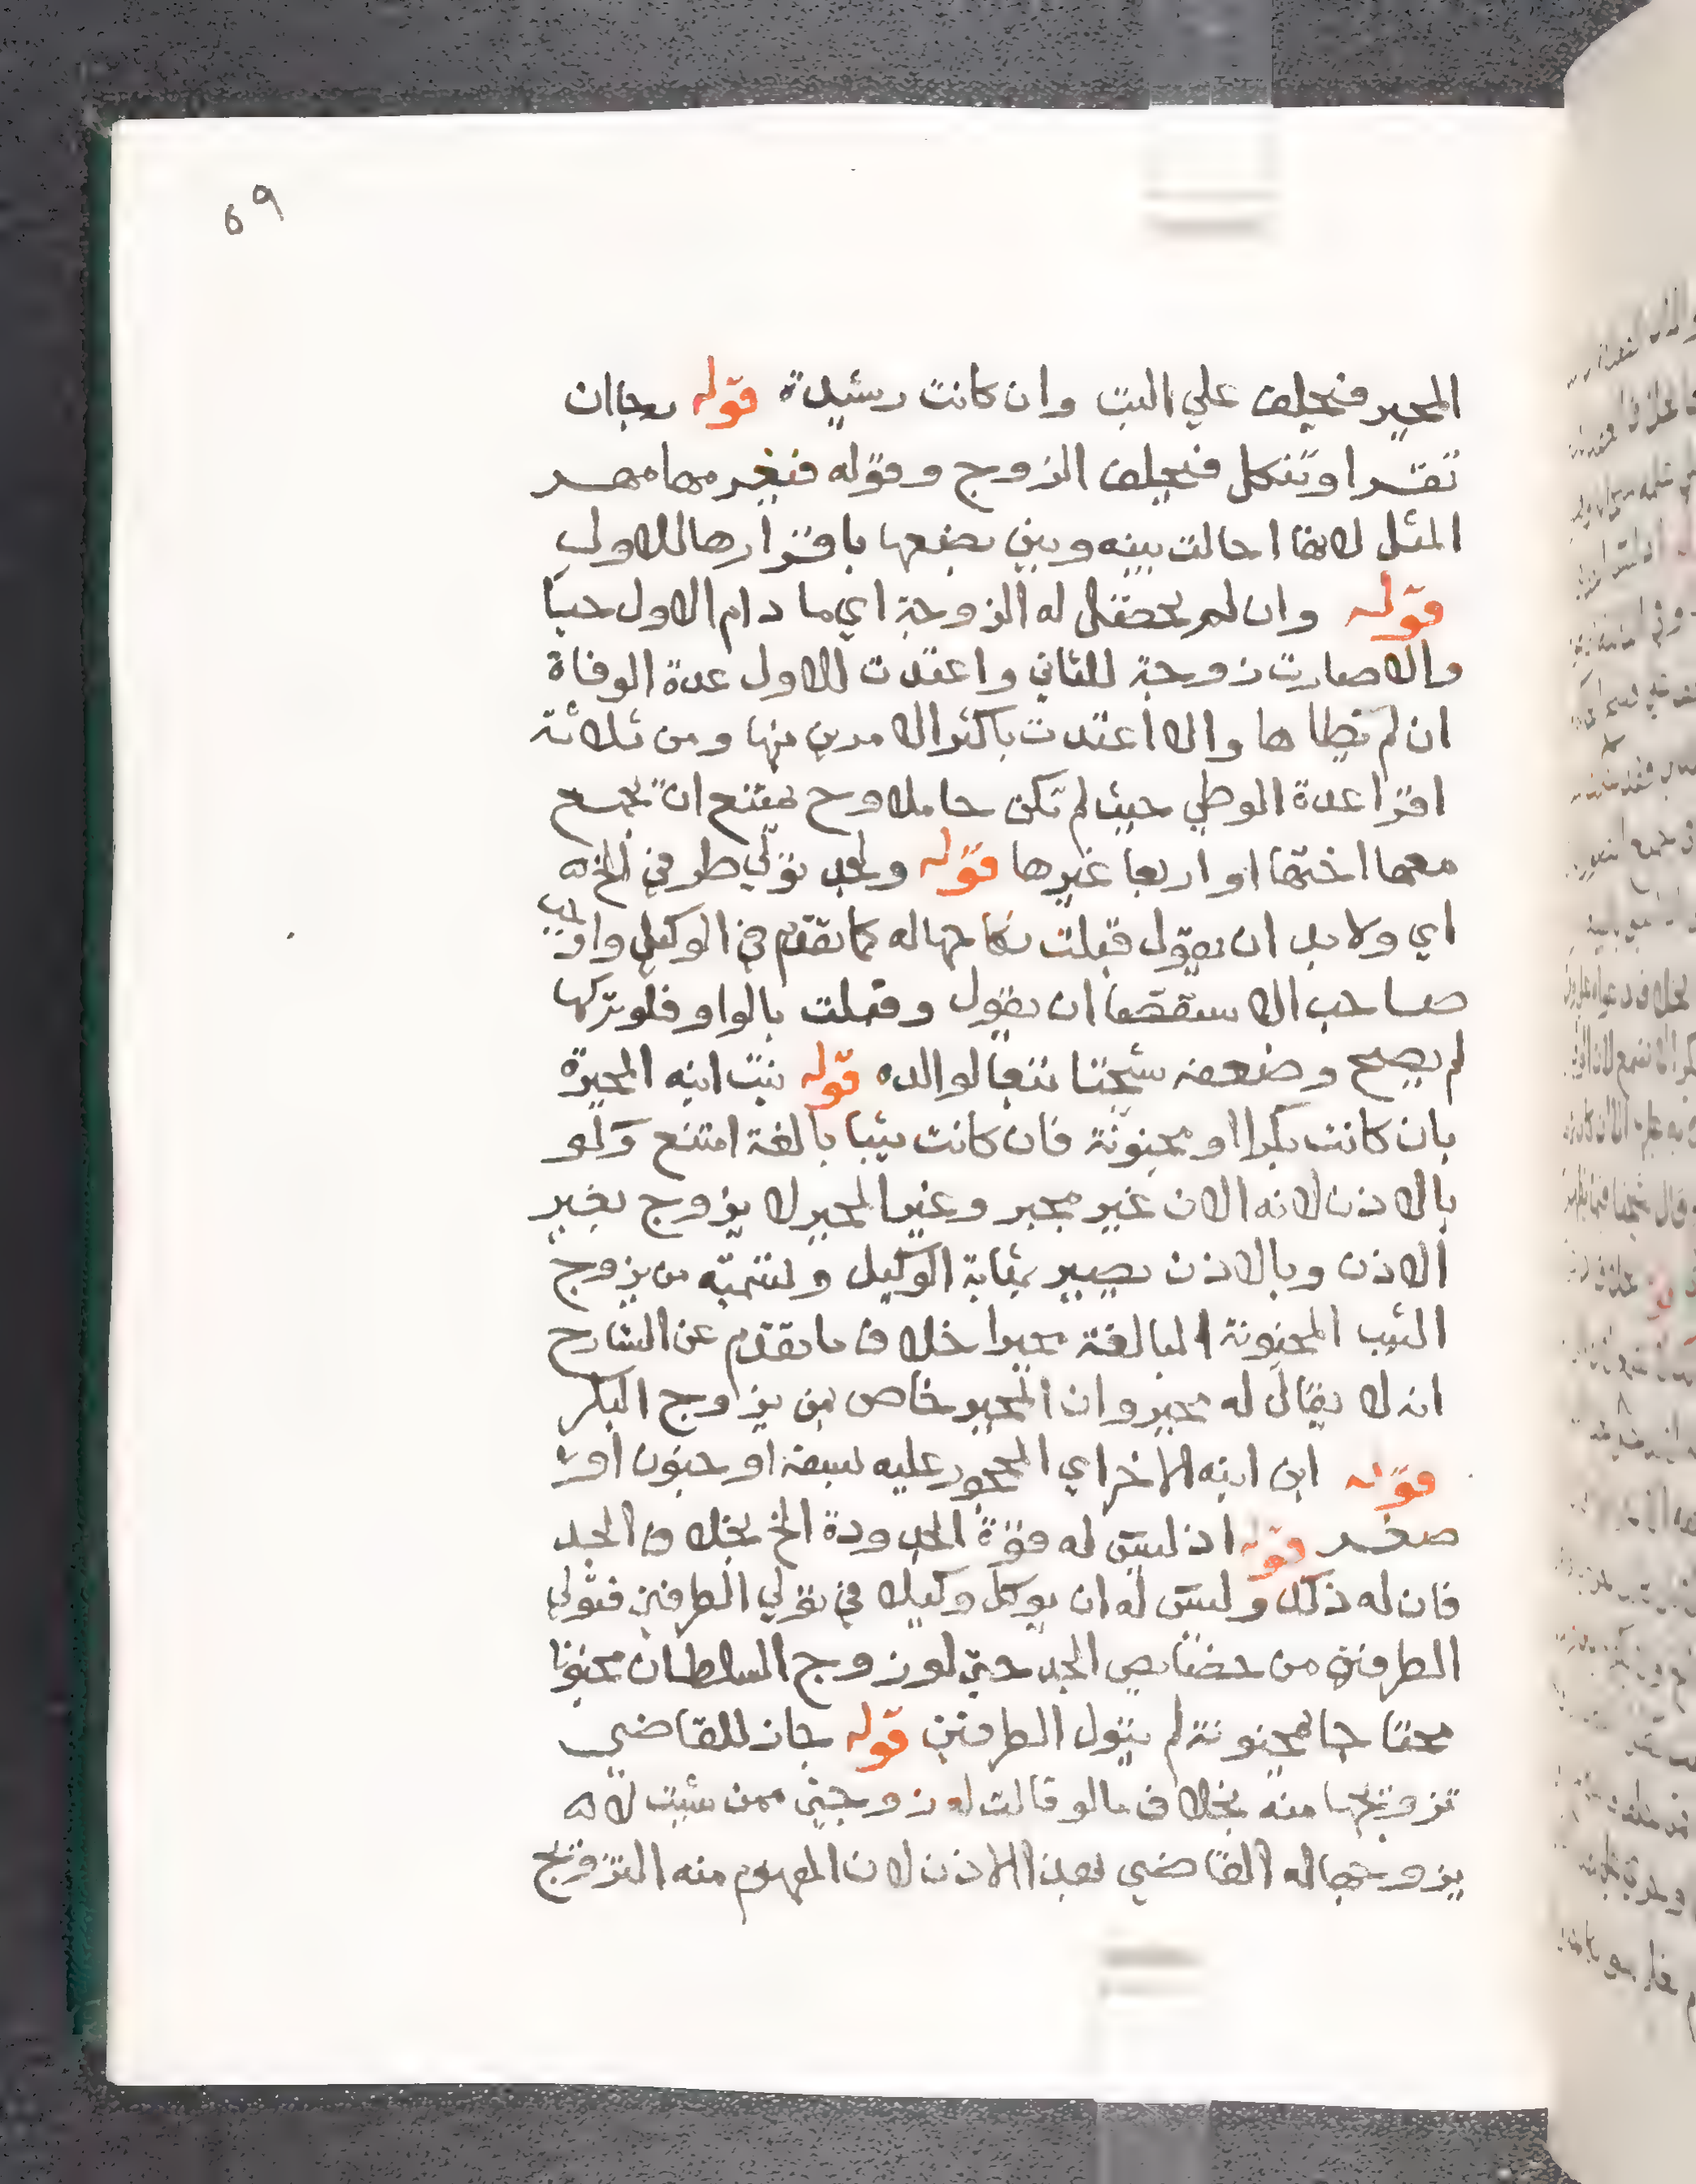 ٥٩
المجبر فيحلف علي البت وان كانت رشيدة قوله رجا ان
تقر او تنكل فيحلف الزوج وقوله فيغرمها مهر
المثل لانها احالت بينه وبين بضعها باقرارها للاول
قوله وان لم يحصل له الزوجة اي ما دام الاول حيا
والا صارت زوجة للثاني واعتدت للاول عدة الوفاة
ان لم يطاها والا اعتدت باكثر الامرين منها ومن ثلاثة
اقرا عدة الوطي حيث لم تكن حاملا وح يمتنع ان يجمع
معها اختها او اربعا غيرها قوله ولجد تولي طرفي الخ
اي ولا بد ان يقول قبلت نكاحها له كما تقدم في الوكيل واوجب
صاحب الاستقصا ان يقول وقبلت بالواو فلو تركها
لم يصح وضعفه شيخنا تبعا لوالده قوله بنت ابنه المجبرة
بان كانت بكرا او مجنونة فان كانت ثيبا بالغة امتنع ولو
بالاذن لانه الان غير مجبر وغير المجبر لا يزوج بغير
الاذن وبالاذن يصير بمثابة الوكيل وتسميته من يزوج
الثيب المجنونة البالغة مجبرا خلاف ما تقدم عن الشارح
انه لا يقال له مجبر وان المجبر خاص بمن يزوج البكر
قوله ابن ابنه الاخر اي المحجور عليه لسفه او جنون او
صغر قوله اذ ليس له قوة الجدودة الخ بخلاف الجد
فان له ذلك وليس له ان يوكل وكيلا في تولي الطرفين فتولي
الطرفين من خصايص الجد حتي لو زوج السلطان مجنونا
محتاجا لمجنونة لم يتول الطرفين قوله جاز للقاضي
تزويجها منه بخلاف ما لو قالت له زوجني ممن شيت لا
يزوجها له القاضي بهذا الاذن لان المفهوم منه التزويج